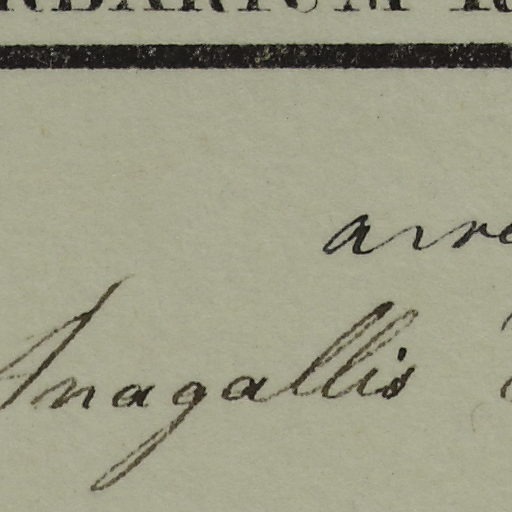 HERBARIUM
arve
Anagallis